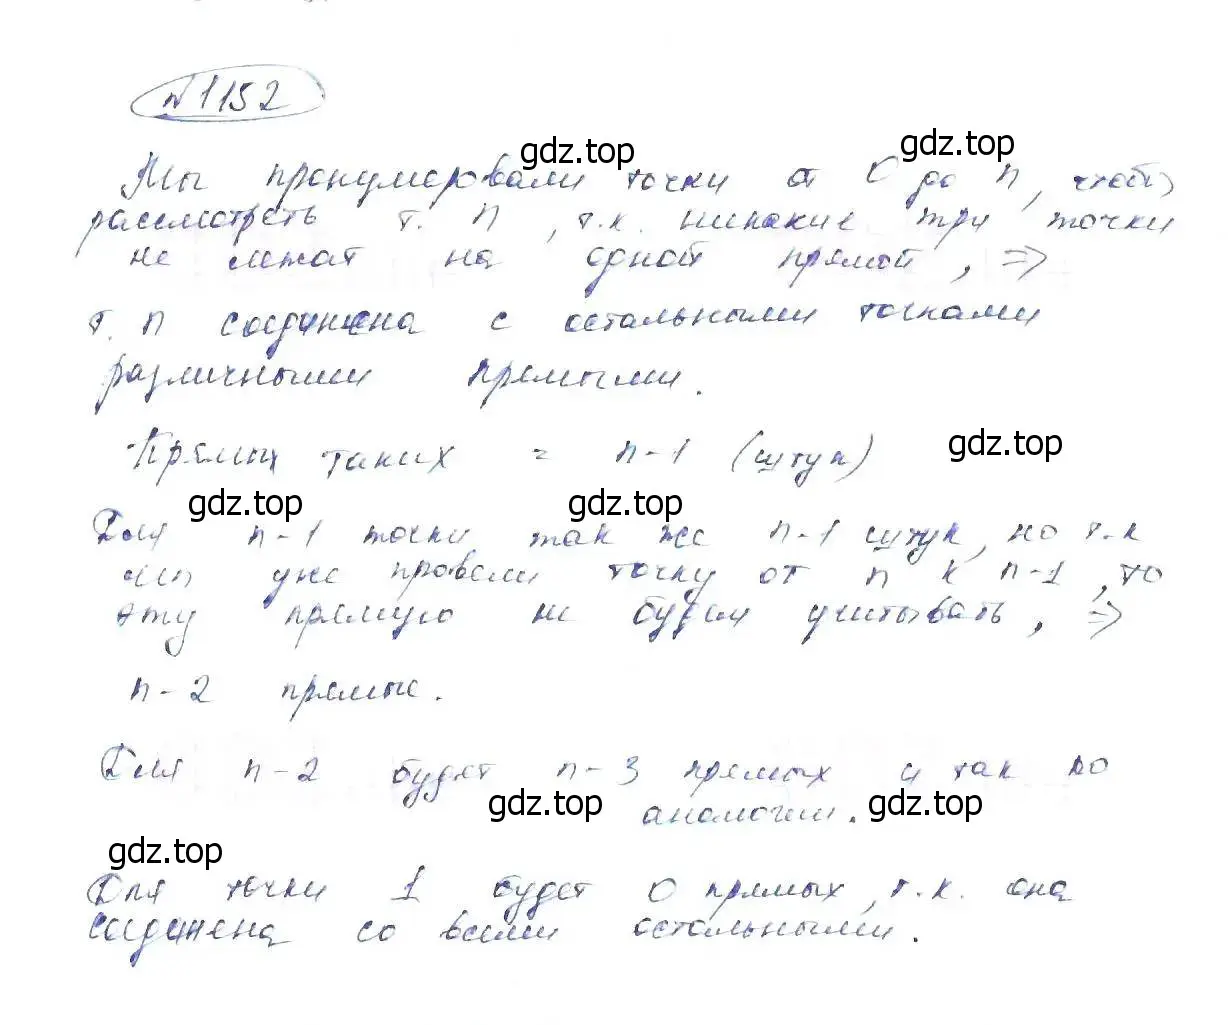 №1152
gdz.top
gdz.top
Мы пронумеровали точки от 0 до n, чтобы
рассмотреть т. n, т.к. никакие три точки
не лежат на одной прямой, ⇒
т. n соединена с остальными точками
различными прямыми.
Прямых таких = n-1 (штук)
gdz.top
gdz.top
gdz.top
Для n-1 точки так же n-1 штук, но т.к
уже провели точку от n к n-1, то
эту прямую не будем учитывать, ⇒
n-2 прямые.
Для n-2 будет n-3 прямых и так по
gdz.top
аналогии.
gdz.top
gdz.top
Для точки 1 будет 0 прямых, т.к. она
соединена со всеми остальными.